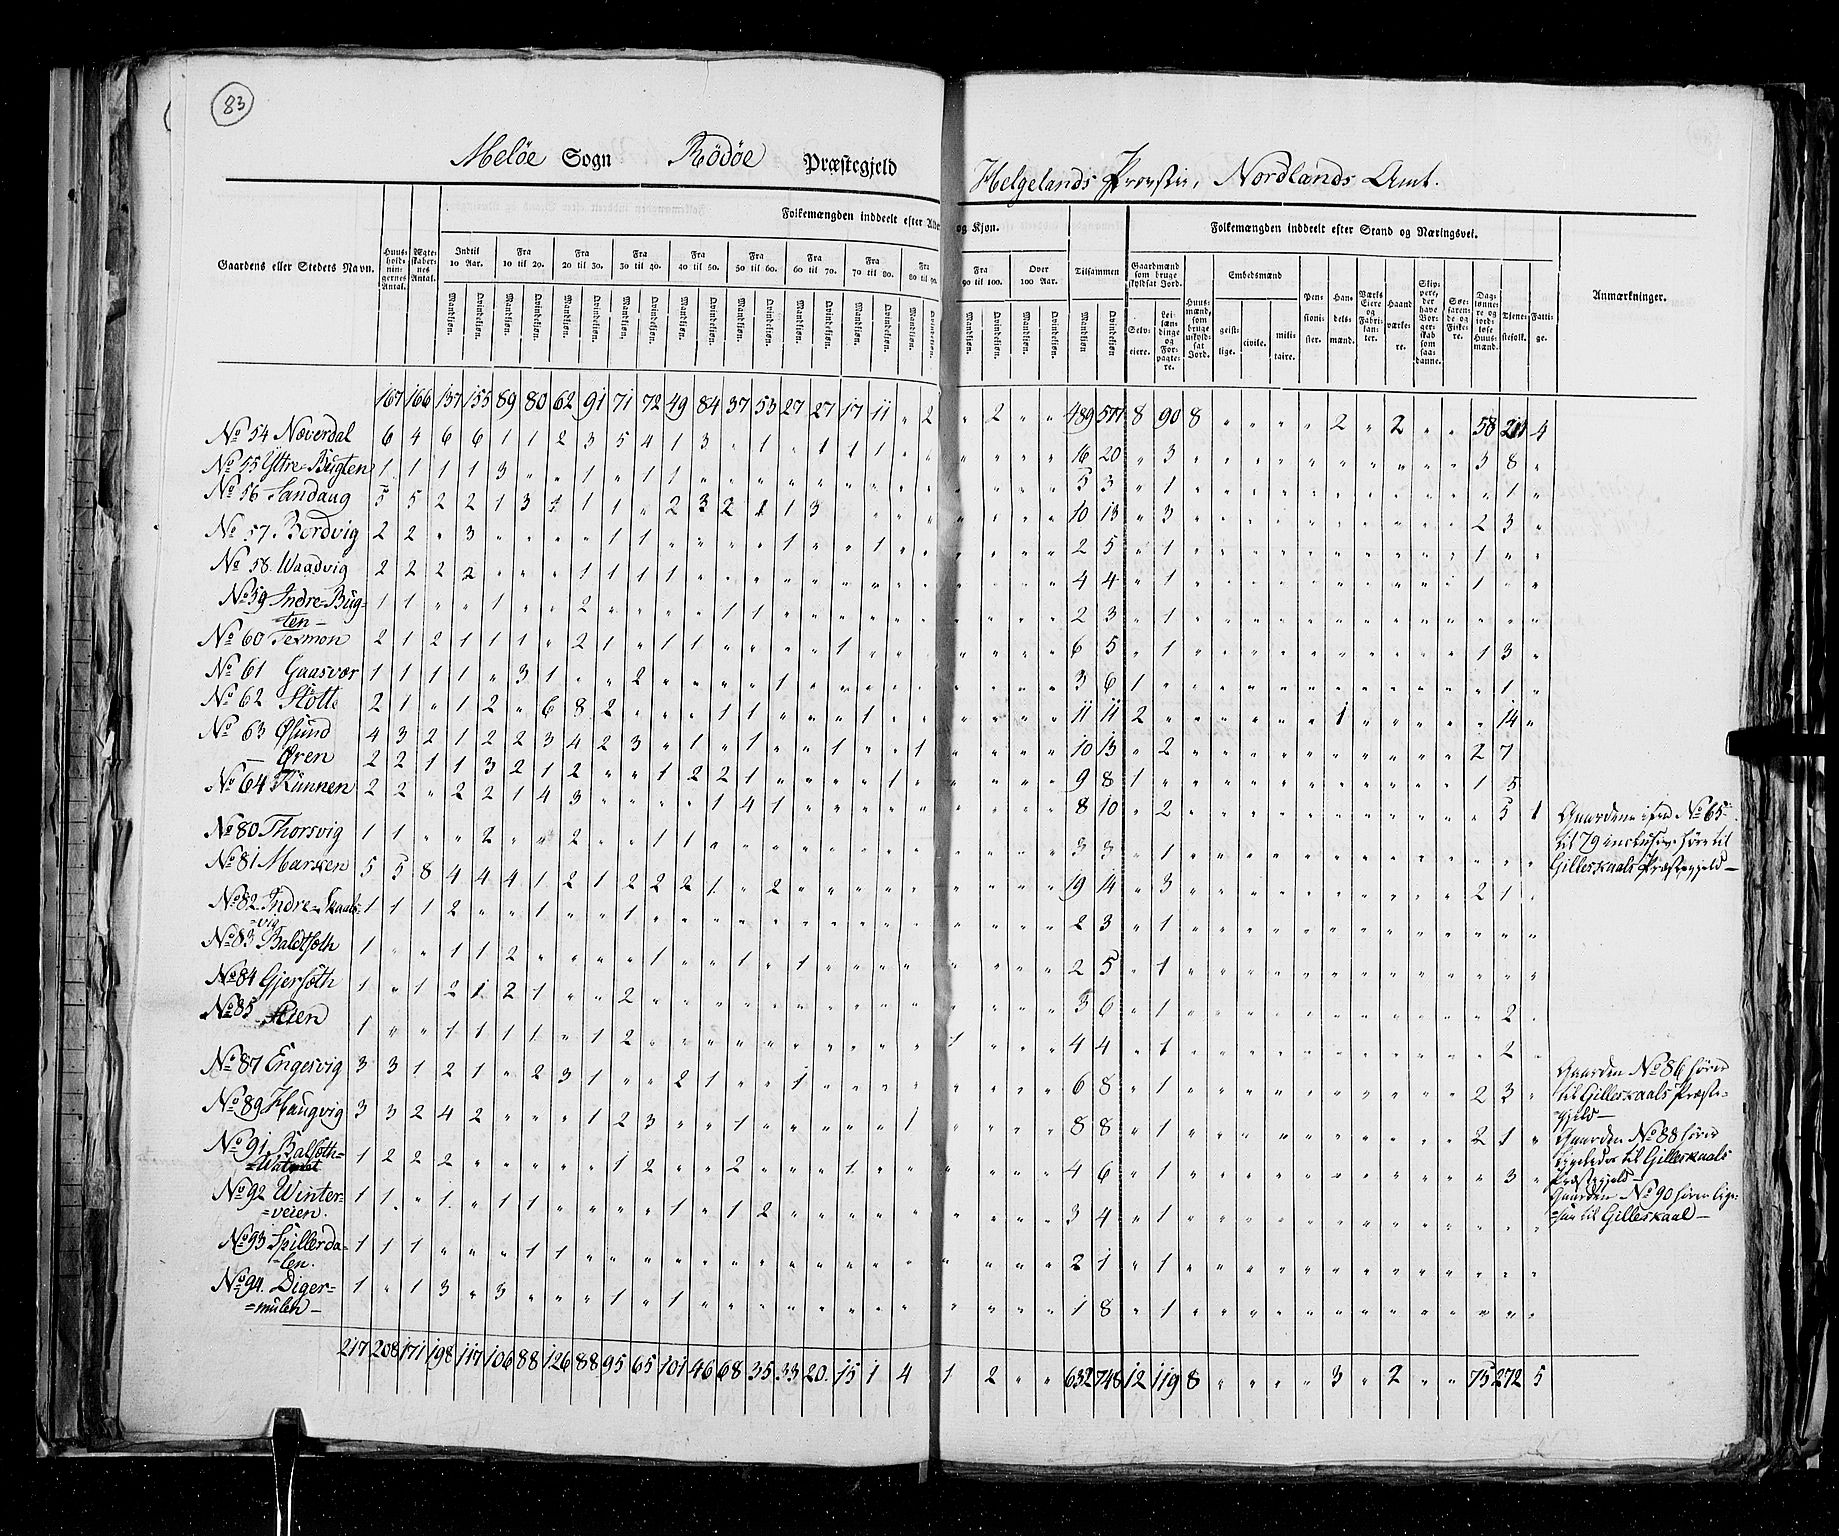 83
Meløe Sogn Rødøe Præstegjeld Helgelands Provstie, Nordlands Amt.
Folkemængden inddeelt efter Alder og Kjøn.
Folkemængden inddeelt efter Stand og Næringsvei.
Gaardens eller Stedets Navn.
Huusholdningernes Antal.
Ægteskabernes Antal.
Indtil 10 Aar.
Fra 10 til 20.
Fra 20 til 30.
Fra 30 til 40.
Fra 40 til 50.
Fra 50 til 60.
Fra 60 til 70.
Fra 70 til 80.
Fra 80 til 90.
Fra 90 til 100.
Over 100 Aar.
Tilsammen
Mandkjøn. Qvindekjøn.
Gaardmænd som bruge skyldsat Jord.
Selveiere.
Leilændinge og Forpagtere.
Huusmænd, som bruge uskyldsat Jord.
Embedsmænd
geistlige. civile. militaire.
Pensionister.
Handelsmænd.
Værks Eiere og Fabrikanter.
Haandværkere.
Skippere, der have Borgerskab som saadanne.
Søefarende og Fiskere.
Daglønnere og jordløse Huusmænd.
Tjenestefolk.
Fattige.
Anmærkninger.
167 166 137 155 89 80 62 91 71 72 49 84 37 53 27 27 17 11 " 2 " 2 " " 489 577 8 90 8 " " " " 2 " 2 " " 58 211 4
No 54 Næverdal 6 4 6 6 1 1 2 3 5 4 1 3 " 1 " 1 1 1 16 20 " 3 3 8 "
No 55 Yttre-Bugten 1 1 1 1 3 " " 1 " 1 1 5 3 " 1 " 1 "
No 56 Sandaug 5 5 2 2 1 3 1 1 1 " 2 3 2 1 1 3 10 13 " 3 2 3 "
No 57 Bordvig 2 2 " 3 " " " " 1 1 " " " " 1 " " 1 2 5 " 1 1 " "
No 58 Waadvig 2 2 2 2 " " " 1 1 1 1 4 4 " 1 1 " "
No 59 Indre-Bug-
=ten- 1 1 " " 1 " " 2 " " " " 1 1 2 3 " 1
No 60 Texmon 2 1 2 1 1 1 " 2 1 " 1 1 " " " " 1 6 5 " 1 1 3 "
No 61 Gaasvær 1 1 1 1 " 3 1 " " 2 " " " " 1 3 6 1 " 1 "
No 62 Støtt 2 1 " 1 2 " 6 8 2 " " " 1 1 " " " 1 11 11 2 1 14 "
No 63 Øsund 4 3 2 1 2 2 3 4 2 3 " 1 " 1 " " 1 " " 1 10 13 " 2 2 7
- Øren 2 2 1 1 3 2 1 2 " " 1 2 2 1 " " " " 1 9 8 1 1 5
No 64 Kunnen 2 2 " 2 2 1 4 3 " " " " 1 4 1 8 10 " 2 5 1
Gaardene ifra No 65
til 79 inclusive høre til
Gilleskaals Præstegjeld-
No 80 Thorsvig 1 1 " " 2 " " 2 " " 1 1 3 3 " 1
No 81 Marken 5 5 8 4 4 4 1 2 1 2 2 2 1 " 2 19 14 " 3 2 1 "
No 82 Indre-Skaals-
=vig 1 1 1 2 " " 1 " " 1 2 3 " 1
No 83 Baldtsæth 1 " " 1 1 2 " " " " 1 " " 1 " 1 2 5 " 1
No 84 Gjersæth 1 " 1 2 1 2 1 " " 2 3 6 " 1 2 "
No 85 1 " " 1 1 1 1 " 1 2 1 4 4 " 1 2 "
No 87 Engesvig 3 3 1 2 1 " 2 3 1 " " 2 1 " " 1 6 8 " 1 2 3 "
Gaarden No 86 hører
til Gilleskaals Præste-
gjeld-
No 89 Haugvig 3 3 2 4 2 " " " 1 2 3 " " 1 " " " " " 1 8 8 " 1 2 1 "
Gaarden No 88 hører
ligeledes til Gilleskaals
Præstegjeld-
No 91 Balsæth=
=Watnet 1 2 2 2 " " " " " 1 2 " " 2 " " " 1 4 6 " 1 3 "
Gaarden No 90 hører lige-
=saa til Gilleskaal-
No 92 Winter-
=veien. 1 1 " 1 " 1 1 " " " " 1 " 1 2 3 4 " 1
No 93 Spillerda-
-len. 1 1 1 " " " 1 1 2 1 " 1
No 94. Diger-
=mulen- 1 " 1 3 " 3 " " " 1 " 1 1 8 " 1
217 208 171 198 117 106 88 126 88 95 65 101 46 68 35 33 20 15 1 4 1 2 " " 632 748 12 119 8 " " " " 3 " 2 " " 75 272 5